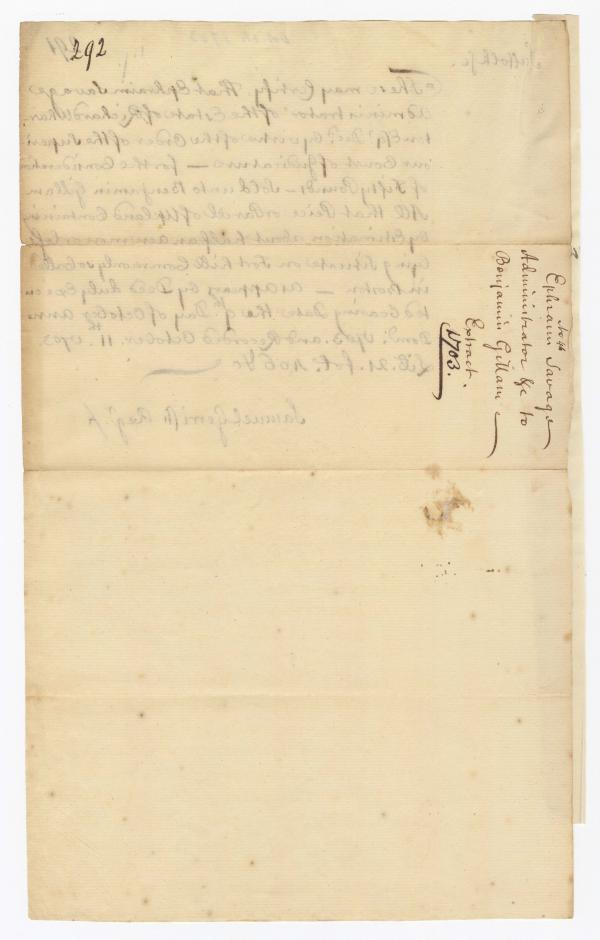 292
No 44
Ephraim Savage
Administrator &c to
Benjamin Gillam
Extract.
1703.
Suffolk Sc.
These may Certify, that Ephraim Savage
Administrator of the Estate of Richard Whar
ton Esqr. Decd. by virtue of the Order of the Superi
our Court of Judicature — for the Consideration
of Fifty Pounds — Sold unto Benjamin Gillam
All that Peice or Parcel of Upland Containing
by Estimation about half an acre more or less
Lying Situate on Fort hill Commonly so Called
in Boston — as appears by Deed duly Execu
ted bearing Date the 9th. Day of October Ann
Domi. 1703. and Record October 11th. 1703.
Lib. 21. fol. 406 &c
Samuel Gerrish Regr.